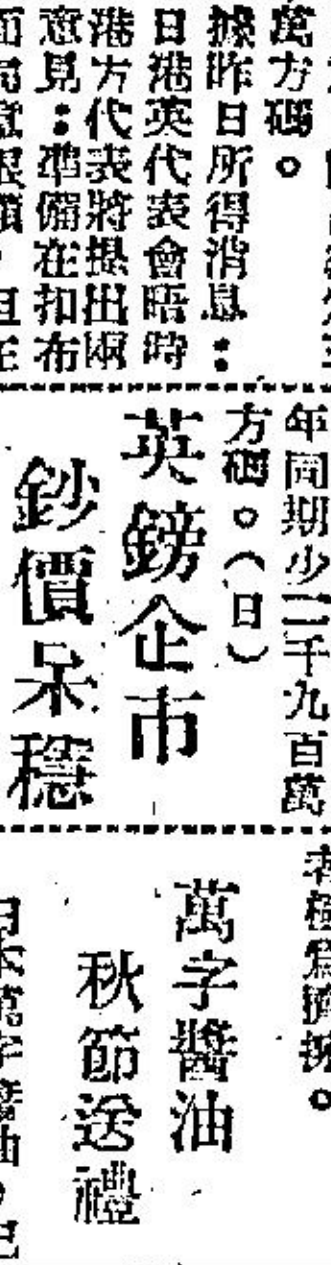 萬方碼。
據昨日所得消息：
日港英代表會晤時
港方代表將提出兩
意見：準備在扣布
年同期少二千九百萬
方碼。（日）
英鎊企市
鈔價呆穩
者極爲擠擁。
萬字醬油
秋節送禮
日本萬字醬油，已